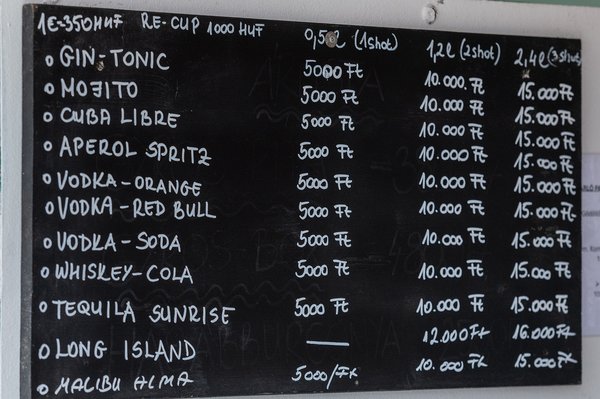 1€-350HUF RE-CUP 1000 HUF 0,5l (1shot) 1,2l (2shot) 2,4l (3shot)
o GIN-TONIC 5000 Ft 10.000 Ft 15.000 Ft
o MOJITO 5000 Ft 10.000 Ft 15.000 Ft
o CUBA LIBRE 5000 Ft 10.000 Ft 15.000 Ft
o APEROL SPRITZ 5000 Ft 10.000 Ft 15.000 Ft
o VODKA-ORANGE 5000 Ft 10.000 Ft 15.000 Ft
o VODKA-RED BULL 5000 Ft 10.000 Ft 15.000 Ft
o VODKA-SODA 5000 Ft 10.000 Ft 15.000 Ft
o WHISKEY-COLA 5000 Ft 10.000 Ft 15.000 Ft
o TEQUILA SUNRISE 5000 Ft 10.000 Ft 15.000 Ft
o LONG ISLAND — 12.000 Ft 16.000 Ft
o MALIBU ALMA 5000/Ft 10.000 Ft 15.000 Ft